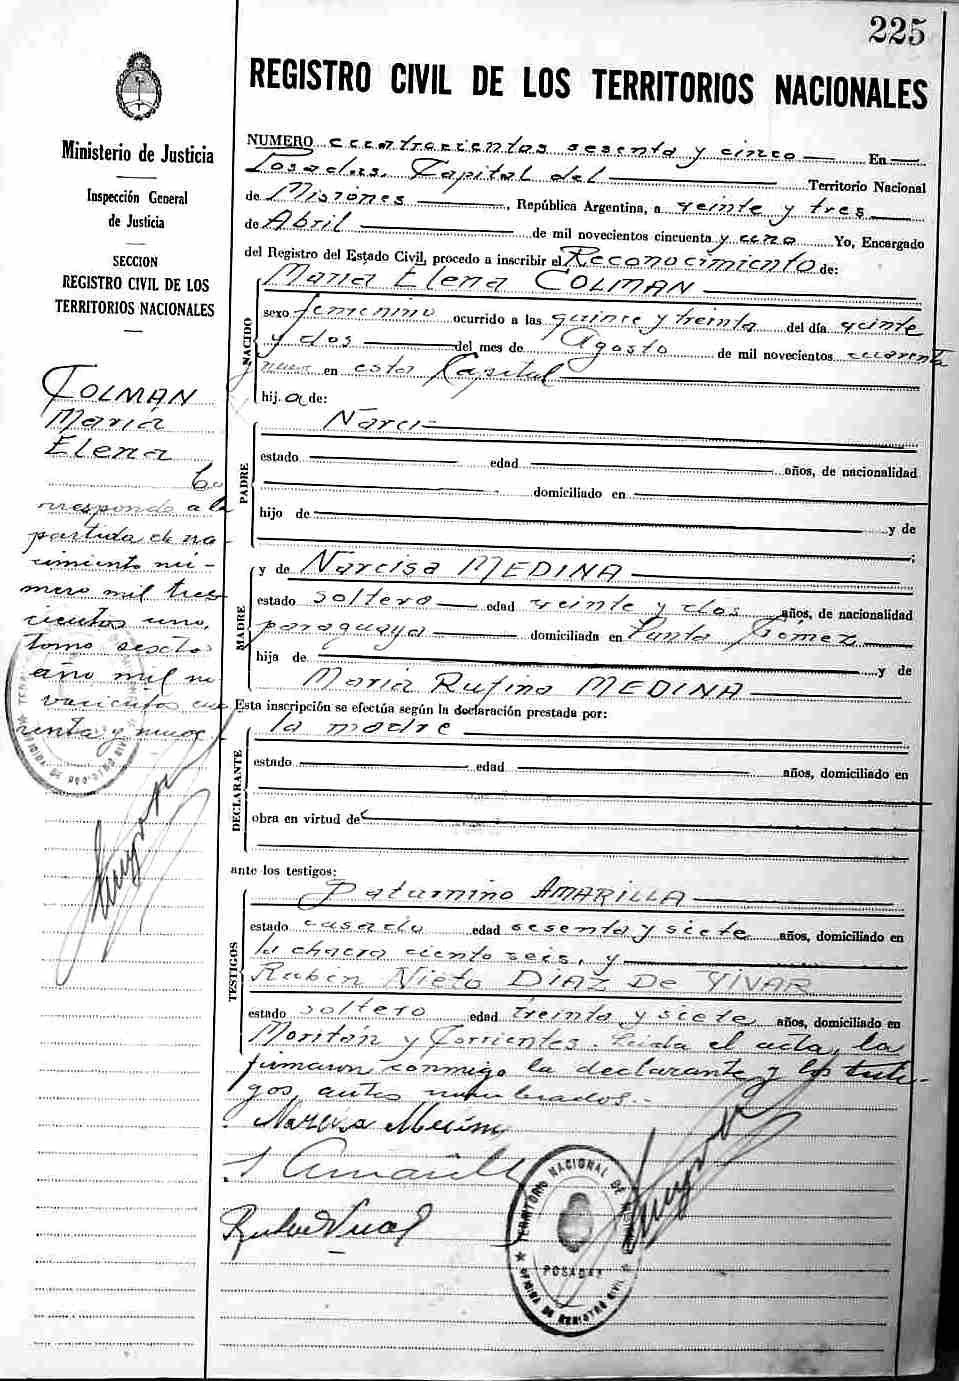 225
REGISTRO CIVIL DE LOS TERRITORIOS NACIONALES
Ministerio de Justicia
Inspección General
de Justicia
SECCION
REGISTRO CIVIL DE LOS
TERRITORIOS NACIONALES
COLMAN
Maria
Elena
Co
rresponde a la
partida de na
cimiento nú-
mero mil tres
cientos uno,
tomo sexto
año mil no
vecientos cua
renta y nueve
NUMERO cuatrocientos sesenta y cinco En
Posadas, Capital del Territorio Nacional
de Misiones, República Argentina, a veinte y tres
de Abril de mil novecientos cincuenta y uno Yo, Encargado
del Registro del Estado Civil, procedo a inscribir el Reconocimiento de:
NACIDO
Maria Elena COLMAN
sexo femenino ocurrido a las quince y treinta del día veinte
y dos del mes de Agosto de mil novecientos cuarenta
y nueve en esta Capital
hij.a de:
PADRE
Narci-
estado edad años, de nacionalidad
domiciliado en
hijo de y de
;
MADRE
y de Narcisa MEDINA
estado soltera edad veinte y dos años, de nacionalidad
paraguaya domiciliada en Punta Gómez
hija de y de
Maria Rufina MEDINA
Esta inscripción se efectúa según la declaración prestada por:
DECLARANTE
la madre
estado edad años, domiciliado en
obra en virtud de
ante los testigos:
TESTIGOS
Saturnino AMARILLA
estado casado edad sesenta y siete años, domiciliado en
la chacra ciento seis, y
Rubén Nieto DIAZ DE VIVAR
estado soltero edad treinta y siete años, domiciliado en
Moritán y Corrientes. Leída el acta, la
firmaron conmigo la declarante y los testi-
gos antes nombrados.-
Narcisa Medina
S Amarilla
TERRITORIO NACIONAL DE MISIONES
POSADAS
OFICINA DE REGISTRO CIVIL